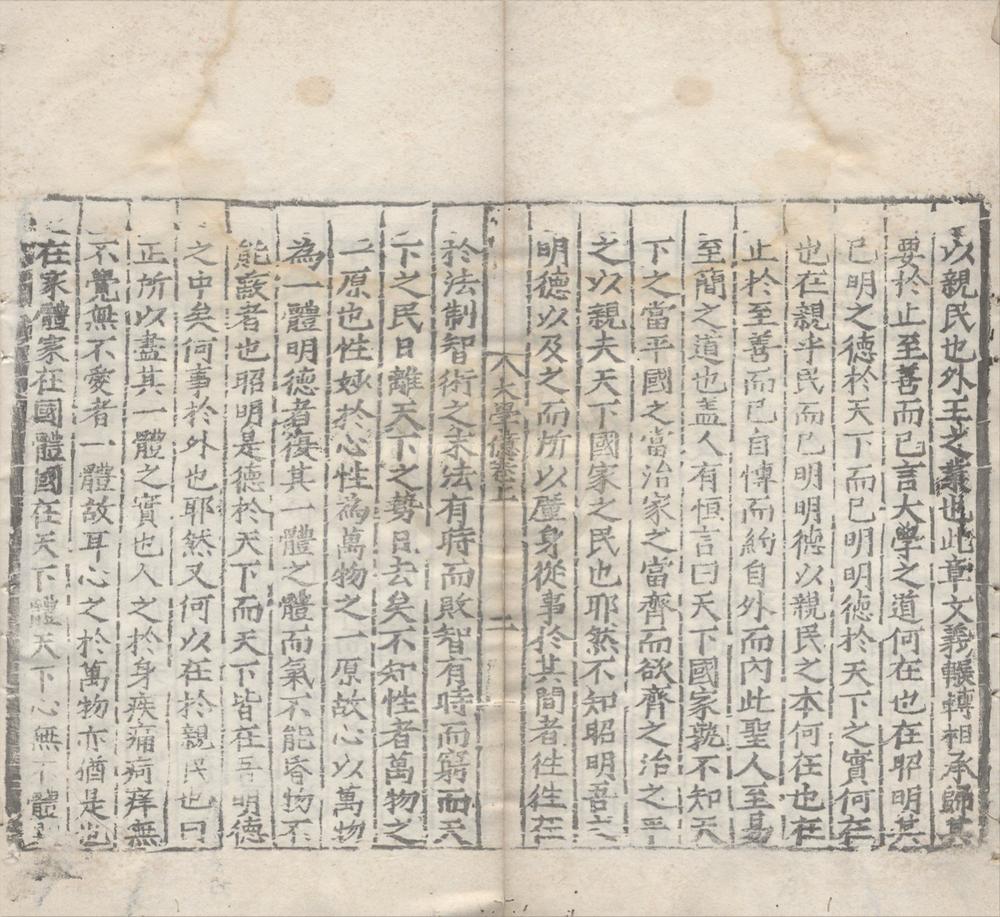 以親民也外王之業也此章文義輾轉相承歸其
要於止至善而已言大學之道何在也在昭明其
已明之德於天下而已明明德於天下之實何在
也在親乎民而已明明德以親民之本何在也在
止於至善而已自慱而約自外而內此聖人至易
至簡之道也盖人有恒言曰天下國家孰不知天
下之當平國之當治家之當齊而欲齊之治之平
之以親夫天下國家之民也耶然不知昭明吾之
明德以及之而所以厪身從事於其間者徃徃在
大學億卷上 二
於法制智術之末法有時而敗智有時而窮而天
下之民日離天下之勢日去矣不知性者萬物之
一原也性妙於心性為萬物之一原故心以萬物
為一體明德者復其一體之體而氣不能昏物不
能蔽者也昭明是德於天下而天下皆在吾明德
之中矣何事於外也耶然又何以在於親民也曰
正所以盡其一體之實也人之於身疾痛疴痒無
不覺無不愛者一體故耳心之於萬物亦猶是也
在家體家在國體國在天下體天下心無不體